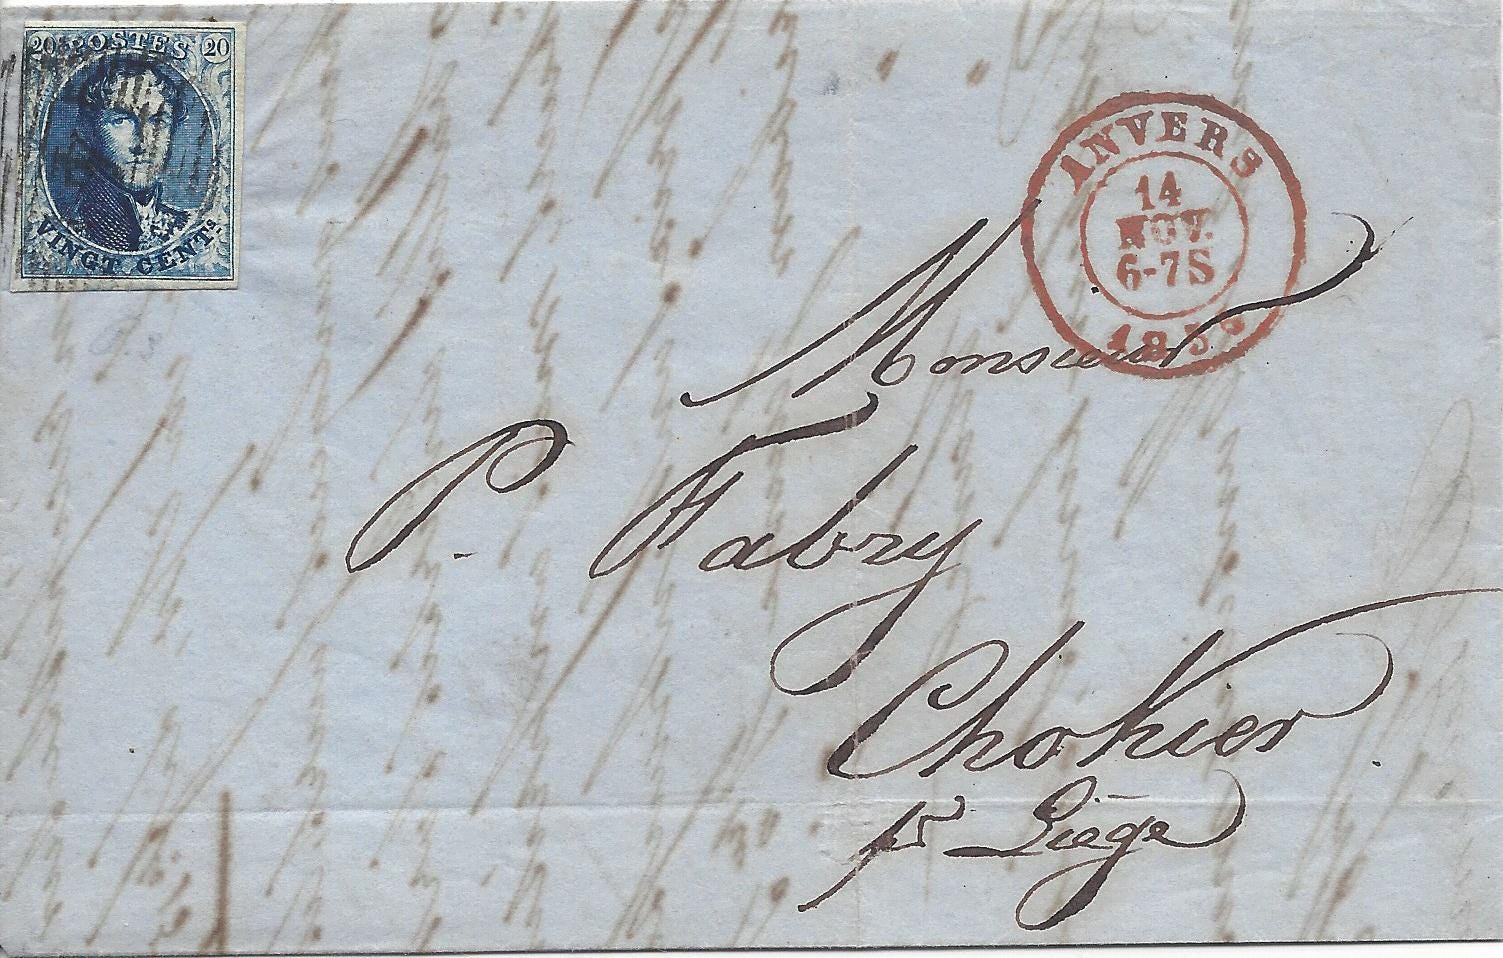 20 POSTES 20
VINGT CENTS.
ANVERS
14
NOV.
6-7S
Monsieur
P. Fabry
Chokier.
pr Liége